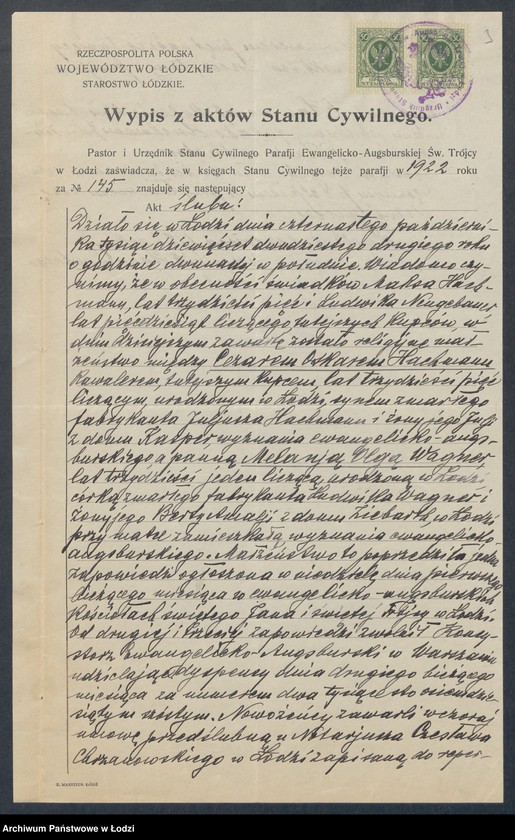 RZECZPOSPOLITA POLSKA
WOJEWÓDZTWO ŁÓDZKIE
STAROSTWO ŁÓDZKIE.
Wypis z aktów Stanu Cywilnego.
Pastor i Urzędnik Stanu Cywilnego Parafji Ewangelicko-Augsburskiej Św. Trójcy
w Łodzi zaświadcza, że w księgach Stanu Cywilnego tejże parafji w 1922 roku
za № 145 znajduje się następujący
Akt ślubu:
Działo się w Łodzi dnia czternastego październi-
ka tysiąc dziewięćset dwudziestego drugiego roku
o godzinie dwunastej w południe. Wiadomo czy-
nimy, że w obecności świadków Maksa Hach-
mana, lat trzydzieści pięć i Ludwika Neugebauer
lat pięćdziesiąt liczącego tutejszych kupców, w
dniu dzisiejszym zawarte zostało religijne mał-
żeństwo między Cezarem Oskarem Hachmann
kawalerem, tutejszym kupcem, lat trzydzieści pięć
liczącym, urodzonym w Łodzi, synem zmarłego
fabrykanta Juljusza Hachmann i żony jego
z domu Kasper wyznania ewangelicko-augs-
burskiego a panną Melanją Olgą Wagner
lat trzydzieści jeden liczącą, urodzoną w Łodzi
córką zmarłego fabrykanta Ludwika Wagner i
żony jego Berty Amalji z domu Ziebarth, w Łodzi
przy matce zamieszkałą wyznania ewangelicko-
augsburskiego. Małżeństwo to poprzedziła jedna
zapowiedź ogłoszona w niedzielę dnia pierwszego
bieżącego miesiąca w ewangelicko-augsburskich
kościołach świętego Jana i świętej Trójcy w Łodzi.
Od drugiej i trzeciej zapowiedzi zwolnił Konsy-
storz Ewangelicko-Augsburski w Warszawie
udzielając dyspensy dnia drugiego bieżącego
miesiąca za numerem dwa tysiące sto osiemdzie-
siątym szóstym. Nowożeńcy zawarli wczoraj
umowę przedślubną u Notarjusza Czesława
Chrzanowskiego w Łodzi zapisaną do reper-
R. MANITIUS, ŁÓDŹ
Archiwum Państwowe w Łodzi